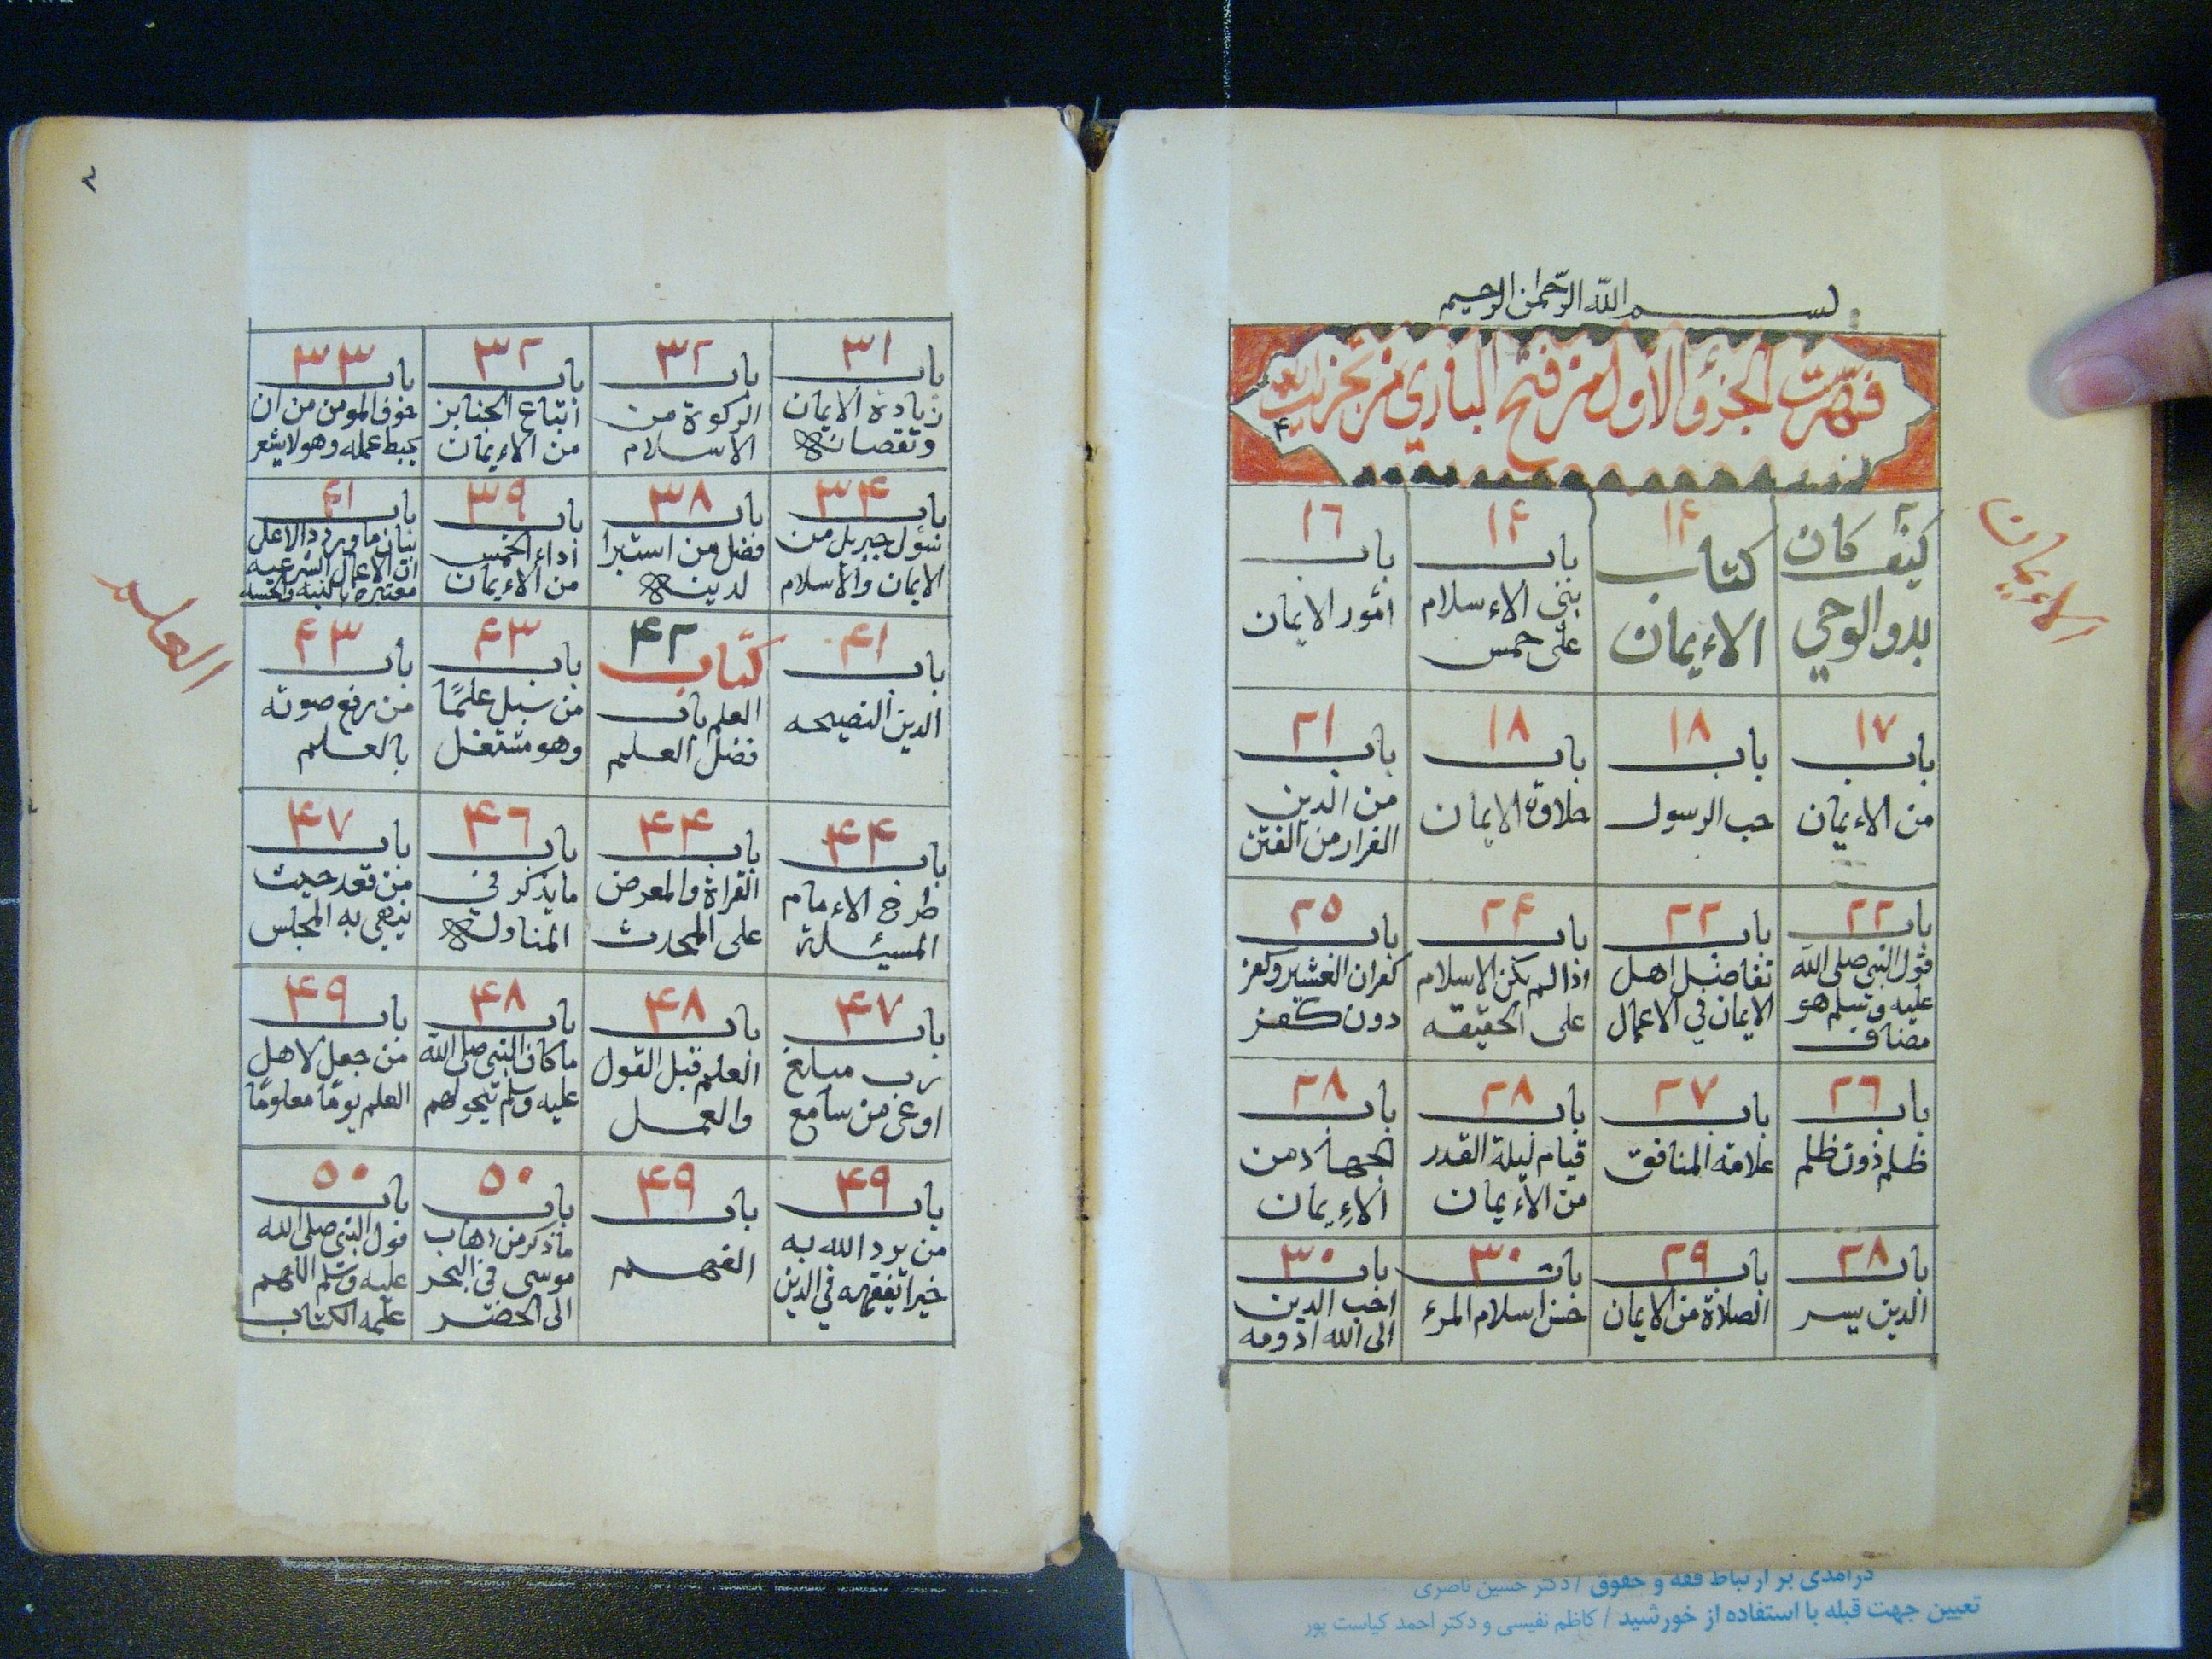 بســـم الله الرحمن الرحيم
فهرست الجزؤ الاول من فتح الباري من تجزئة
۴
الاءيمان
٢
كيف كان
بدو الوحي
١۴
كتاب
الاءيمان
١۴
باب
بنى الاءسلام
على خمس
١٦
باب
امور الايمان
١٧
باب
من الاءيمان
١٨
باب
حب الرسول
١٨
باب
حلاوة الايمان
٢١
باب
من الدين
الفرار من الفتن
٢٢
باب
قول النبي صلى الله
عليه وسلم هو
مضاف
٢٢
باب
تفاضل اهل
الايمان في الاعمال
٢۴
باب
اذا لم يكن الاسلام
على الحقيقه
٢٥
باب
كفران العشير وكفر
دون كفر
٢٦
باب
ظلم دون ظلم
٢٧
باب
علامة المنافق
٢٨
باب
قيام ليلة القدر
من الاءيمان
٢٨
باب
الجهاد من
الاءيمان
٢٨
باب
الدين يسر
٢٩
باب
الصلاة من الايمان
٣٠
باب
حسن اسلام المرء
٣٠
باب
احب الدين
الى الله ادومه
٨
٣١
باب
زيادة الايمان
ونقصانه
٣٢
باب
الزكوة من
الاسلام
٣٢
باب
اتباع الجنايز
من الاءيمان
٣٣
باب
خوف المومن من ان
يحبط عمله وهو لا يشعر
٣۴
باب
سؤل جبريل من
الايمان والاسلام
٣٨
باب
فضل من استبرا
لدينه
٣٩
باب
اداء الخمس
من الاءيمان
۴١
باب
بيان ما ورد د الاعلى
ان الاعمال الشرعيه
معتبره بالنيه والحسبه
۴١
باب
الدين النصيحه
۴٢
كتاب
العلم باب
فضل العلم
۴٣
باب
من سئل علمًا
وهو مشتغل
۴٣
باب
من رفع صوته
بالعلم
العلم
۴۴
باب
طرح الاءمام
المسيئلة
۴۴
باب
القراة والعرض
على المحدث
۴٦
باب
ما يذكر في
المناوله
۴٧
باب
من قعد حيث
ينتهي به المجلس
۴٧
باب
رب مبلغ
اوعى من سامع
۴٨
باب
العلم قبل القول
والعمل
۴٨
باب
ما كان النبي صلى الله
عليه وسلم يتخولهم
۴٩
باب
من جعل لاهل
العلم يومًا معلومًا
۴٩
باب
من يرد الله به
خيرا يفقهه في الدين
۴٩
باب
الفهم
٥٠
باب
ما ذكر من ذهاب
موسى في البحر
الى الخضر
٥٠
باب
قول النبي صلى الله
عليه وسلم اللهم
علمه الكتاب
درآمدی بر ارتباط فقه و حقوق / دکتر حسین ناصری
تعیین جهت قبله با استفاده از خورشید / کاظم نفیسی و دکتر احمد کیاست پور